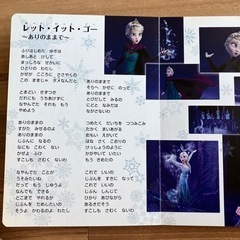 レット・イット・ゴー
～ありのままで～
ふりはじめた ゆきは
あしあと けして
まっしろな せかいに
ひとりの わたし
かぜが こころに ささやくの
この ままじゃ ダメなんだと
とまどい きずつき
だれにも うちあけずに
なやんでた それも もう
やめよう
ありのままの
すがた みせるのよ
ありのままの
じぶんに なるの
なにも こわく ない
かぜよ ふけ
すこしも さむく ないわ
なやんでた ことが
うそみたいね
だって もう じゆうよ
なんでも できる
どこまで やれるか
じぶんを ためしたいの
そうよ かわるのよ わたし
ありのままで
そらへ かぜに のって
ありのままで
とびだして みるの
にどと なみだは
ながさないわ
つめたく だいちを つつみこみ
たかく まいあがる
おもい えがいて
はなさく こおりの
けっしょうのように
かがやいて いたい
もう きめたの
これで いいの
じぶんを すきに なって
これで いいの
じぶん しんじて
ひかり あびながら
あるきだそう
すこしも さむく ないわ